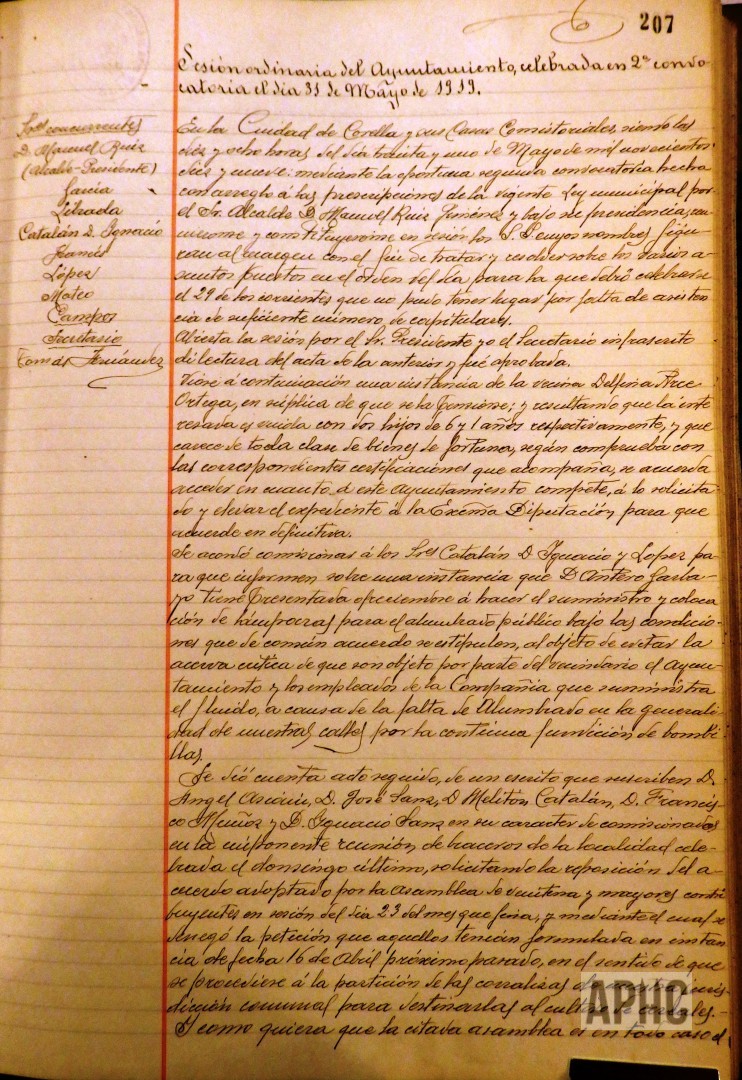 207
Sesión ordinaria del Ayuntamiento, celebrada en 2ª convo-
catoria el dia 31 de Mayo de 1919.
Sres concurrentes
D. Manuel Ruiz
(Alcalde-Presidente)
Garcia
Librada
Catalán D. Ignacio
Francés
López
Mateo
Campos
Secretario
Tomás Fernández
En la Ciudad de Corella y sus Casas Consistoriales, siendo las
diez y ocho horas del dia treinta y uno de Mayo de mil novecientos
diez y nueve: mediante la oportuna segunda convocatoria hecha
con arreglo á las prescripciones de la vigente Ley municipal por
el Sr. Alcalde D. Manuel Ruiz Jiménez y bajo su presidencia, reu-
nieronse y constituyeronse en sesión los S.S. cuyos nombres figu-
ran al margen con el fin de tratar y resolver sobre los varios a-
suntos puestos en el órden del dia para la que debió celebrarse
el 29 de los corrientes que no pudo tener lugar por falta de asisten-
cia de suficiente número de capitulares.
Abierta la sesión por el Sr. Presidente yo el Secretario infrascrito
di lectura del acta de la anterior y fué aprobada.
Viene á continuación una instancia de la vecina Delfina Arce
Ortega, en súplica de que se la pensione; y resultando que la inte-
resada es viuda con dos hijos de 6 y 1 años respectivamente, y que
carece de toda clase de bienes de fortuna, según comprueba con
las correspondientes certificaciones que acompaña, se acuerda
acceder en cuanto á este Ayuntamiento compete, á lo solicita-
do y elevar el expediente á la Excma Diputación para que
acuerde en definitiva.
Se acordó comisionar á los Sres Catalán D. Ignacio y Lopez pa-
ra que informen sobre una instancia que D. Antero
tiene presentada ofreciendose á hacer el suministro y coloca-
ción de lámparas para el alumbrado público bajo las condicio-
nes que de común acuerdo se estipulen, al objeto de evitar la
acerva critica de que son objeto por parte del vecindario el Ayun-
tamiento y los empleados de la Compañia que suministra
el fluido, a causa de la falta de Alumbrado en la generali-
dad de nuestras calles por la continua fundición de bombi-
llas.
Se dió cuenta acto seguido, de un escrito que suscriben D.
Angel D. José Sanz, D. Melitón Catalán, D. Francis-
co Muñoz y D. Ignacio Sanz en su caracter de comisionados
en la imponente reunión de braceros de la localidad cele-
brada el domingo último, solicitando la reposición del a-
cuerdo adoptado por la Asamblea de veintena y mayores contri-
buyentes en sesión del dia 23 del mes que fina, y mediante el cual se
denegó la petición que aquellos tenian formulada en instan-
cia de fecha 16 de Abril próximo pasado, en el sentido de que
se procediese á la partición de las corralizas de juris-
dicción comunal para destinarlas al cultivo de cereales.-
Y como quiera que la citada asamblea es en todo caso
APHC